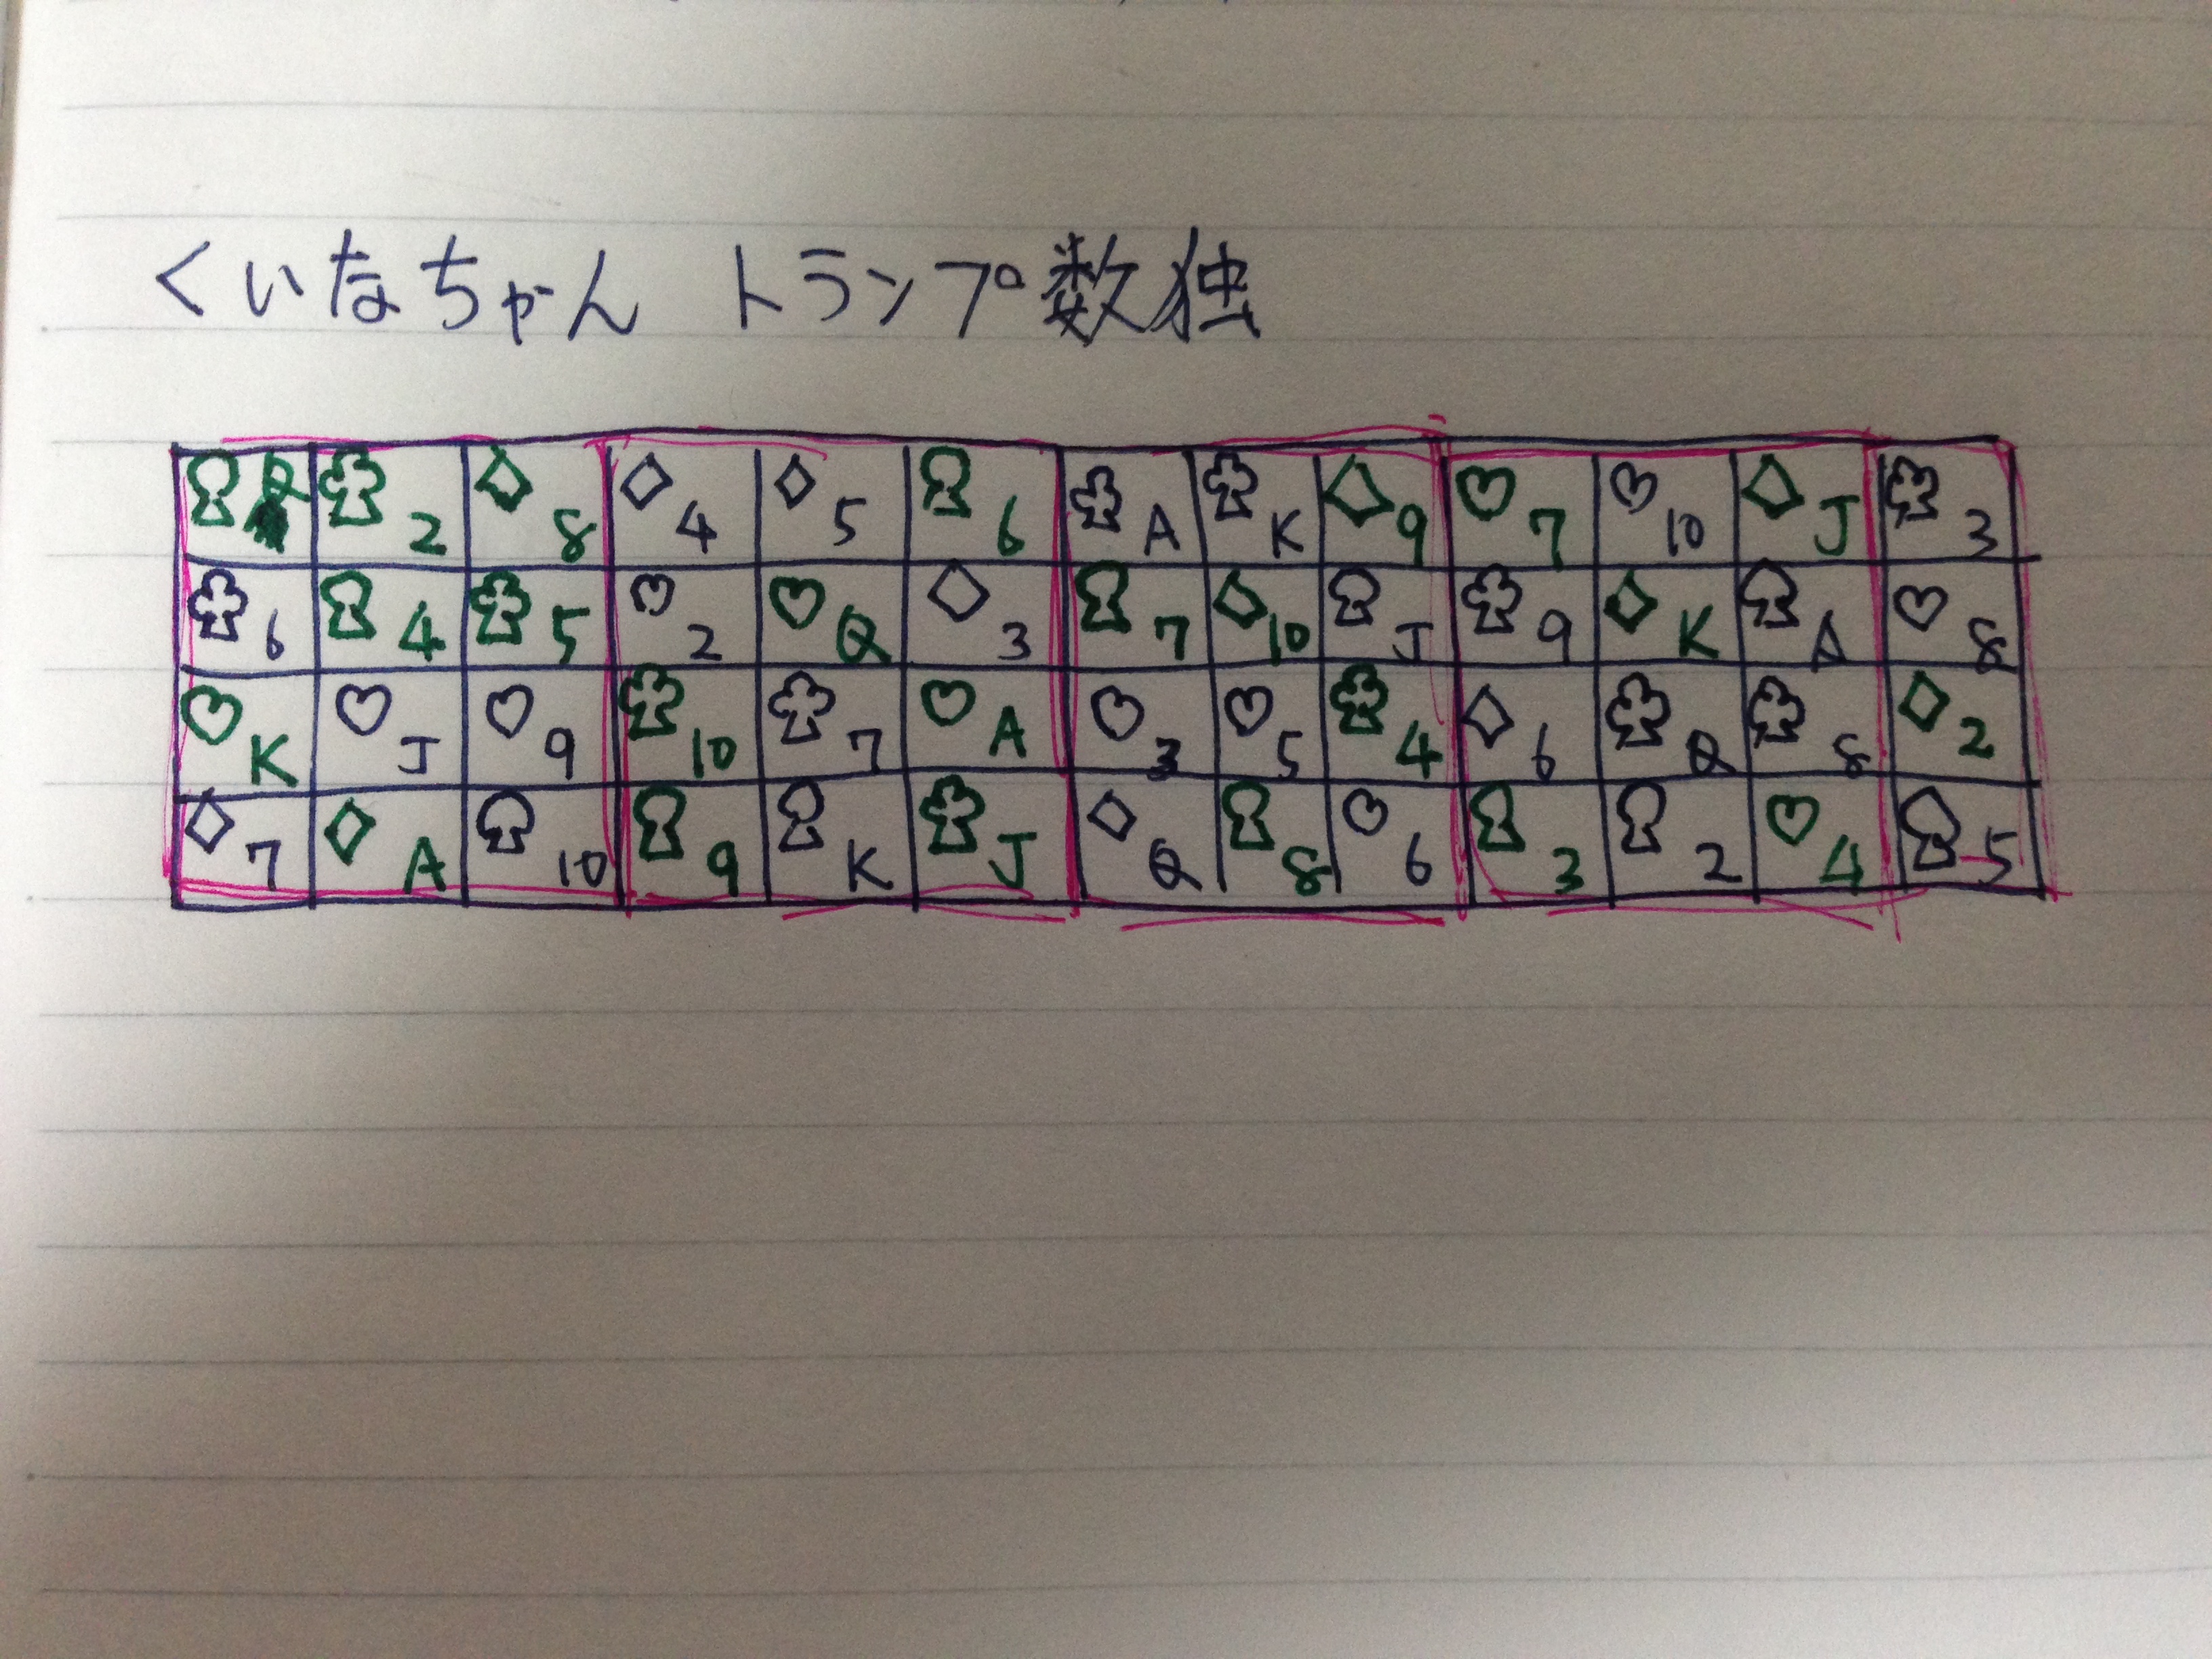 くいなちゃん トランプ数独
♠Q ♣2 ♢8 ♢4 ♢5 ♠6 ♣A ♣K ♢9 ♡7 ♡10 ♢J ♣3
♣6 ♠4 ♣5 ♡2 ♡Q ♢3 ♠7 ♢10 ♠J ♣9 ♢K ♠A ♡8
♡K ♡J ♡9 ♣10 ♣7 ♡A ♡3 ♡5 ♣4 ♢6 ♣Q ♣8 ♢2
♢7 ♢A ♠10 ♠9 ♠K ♣J ♢Q ♠8 ♡6 ♠3 ♠2 ♡4 ♠5